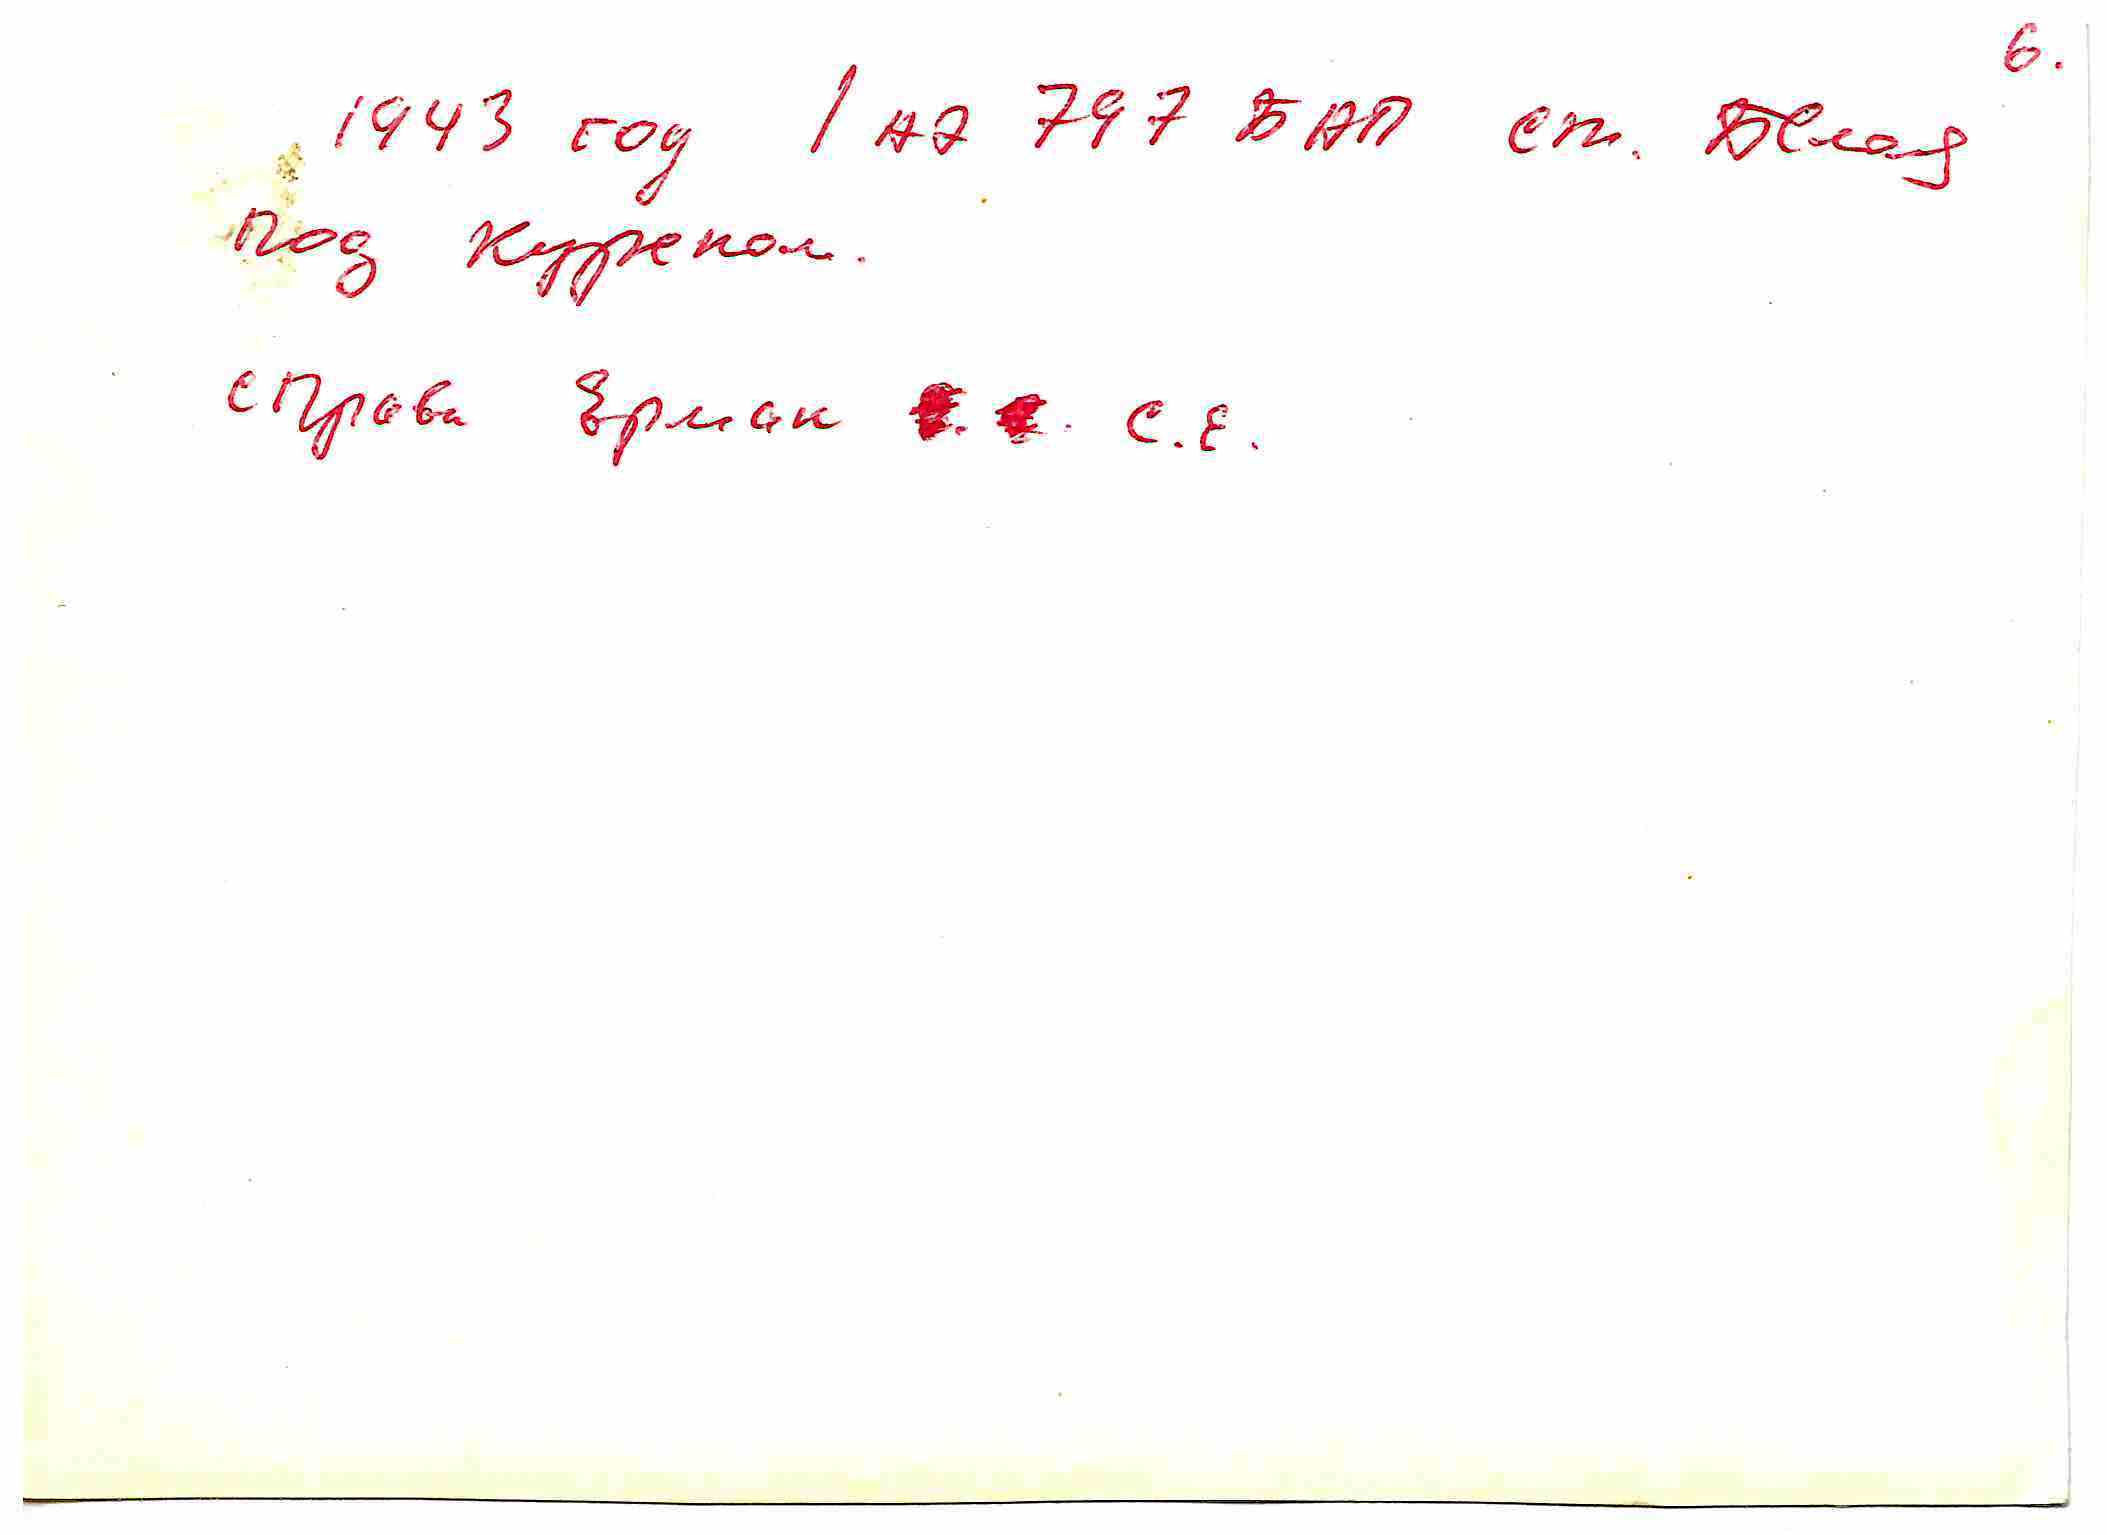 6.
1943 год / на 797 БАП ст. Белая
под
справа Ерман С.Е.